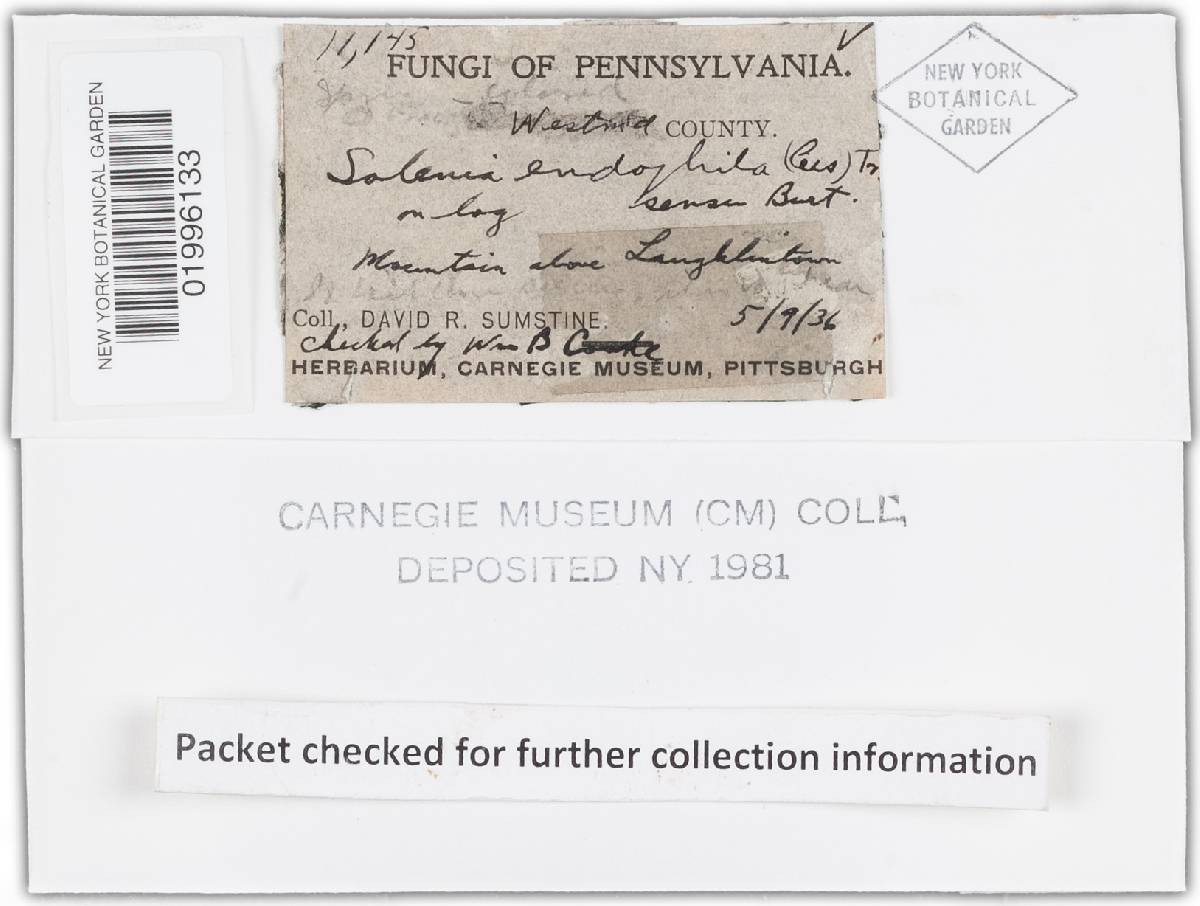 NEW YORK BOTANICAL GARDEN
01996133
11,145
FUNGI OF PENNSYLVANIA.
Westm'd COUNTY.
Solenia endophila (Ces) Fr.
on log sensu Burt.
Mountain above Laughlintown
5/9/36
Coll., DAVID R. SUMSTINE.
checked by Wm B Cooke
HERBARIUM, CARNEGIE MUSEUM, PITTSBURGH
NEW YORK
BOTANICAL
GARDEN
CARNEGIE MUSEUM (CM) COLL.
DEPOSITED NY 1981
Packet checked for further collection information